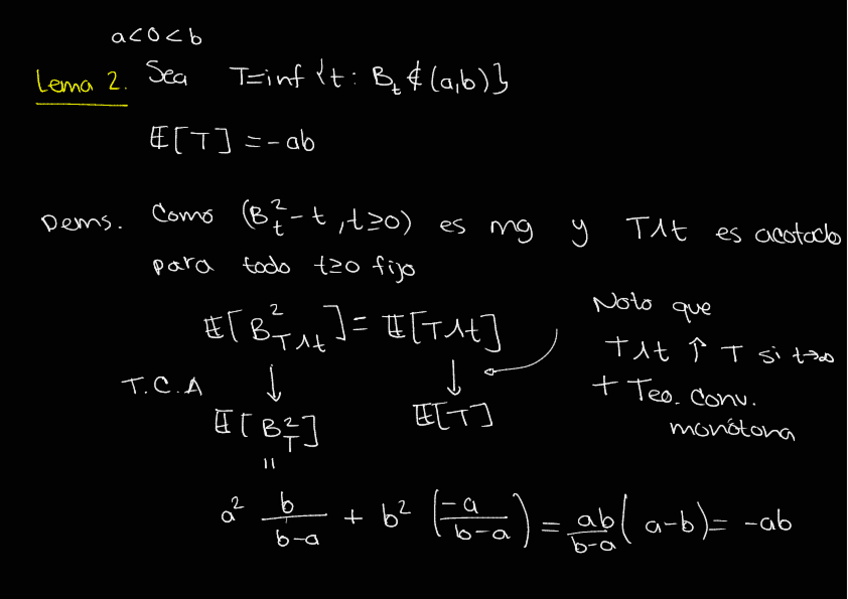 a<0<b
Lema 2. Sea T=inf{t: B_t ∉ (a,b)}
𝔼[T] = -ab
Dems. Como (B_t^2 - t, t≥0) es mg y T∧t es acotado
para todo t≥0 fijo
𝔼[B_{T∧t}^2] = 𝔼[T∧t]
Noto que
T∧t ↑ T si t→∞
+ Teo. conv.
monótona
T.C.A ↓ ↓
𝔼[B_T^2] 𝔼[T]
=
a^2 b/(b-a) + b^2 (-a/(b-a)) = ab/(b-a) (a-b) = -ab